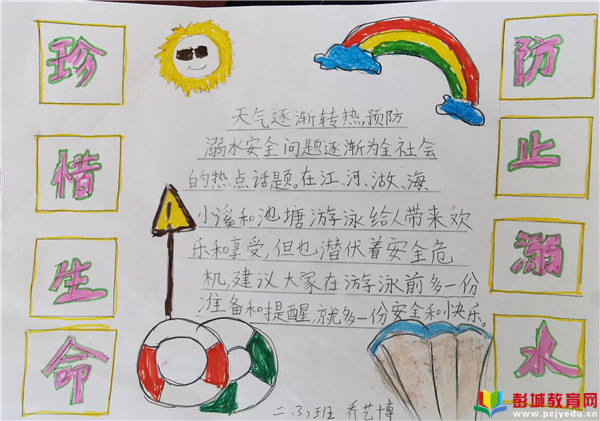 珍惜生命
防止溺水
天气逐渐转热,预防
溺水安全问题逐渐为全社会
的热点话题。在江、河、湖、海、
小溪和池塘游泳给人带来欢
乐和享受,但也潜伏着安全危
机,建议大家在游泳前多一份
准备和提醒,就多一份安全和快乐。
二、(3)班 乔艺博
彭城教育网
www.pcjyedu.com